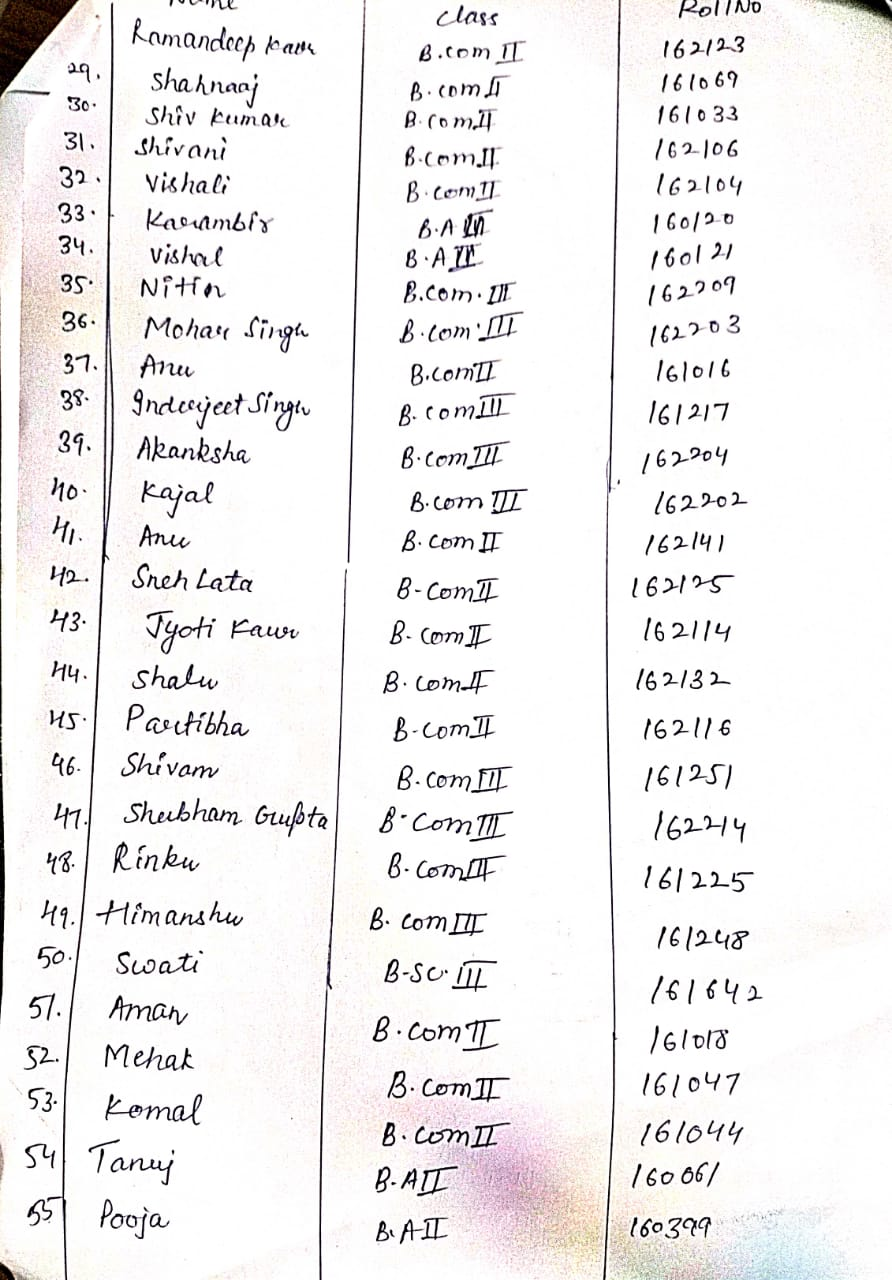 Name Class Roll No
Ramandeep Kaur B.com II 162123
29. Shahnaaj B.com II 161069
30. Shiv Kumar B.com II 161033
31. Shivani B.com II 162106
32. Vishali B.com II 162104
33. Karambir B.A III 160120
34. Vishal B.A III 160121
35. Nitin B.com. III 162209
36. Mohar Singh B.com III 162203
37. Anu B.com II 161016
38. Inderjeet Singh B.com III 161217
39. Akanksha B.com III 162204
40. Kajal B.com III 162202
41. Anu B.com II 162141
42. Sneh Lata B-Com II 162125
43. Jyoti Kaur B-com II 162114
44. Shalu B.com II 162132
45. Partibha B-Com II 162116
46. Shivam B.com III 161251
47. Shubham Gupta B-Com III 162214
48. Rinku B.Com III 161225
49. Himanshu B.com III 161248
50. Swati B-SC. III 161642
51. Aman B.com II 161018
52. Mehak B.com II 161047
53. Komal B.com II 161044
54 Tanuj B.A II 160061
55 Pooja B.A II 160399